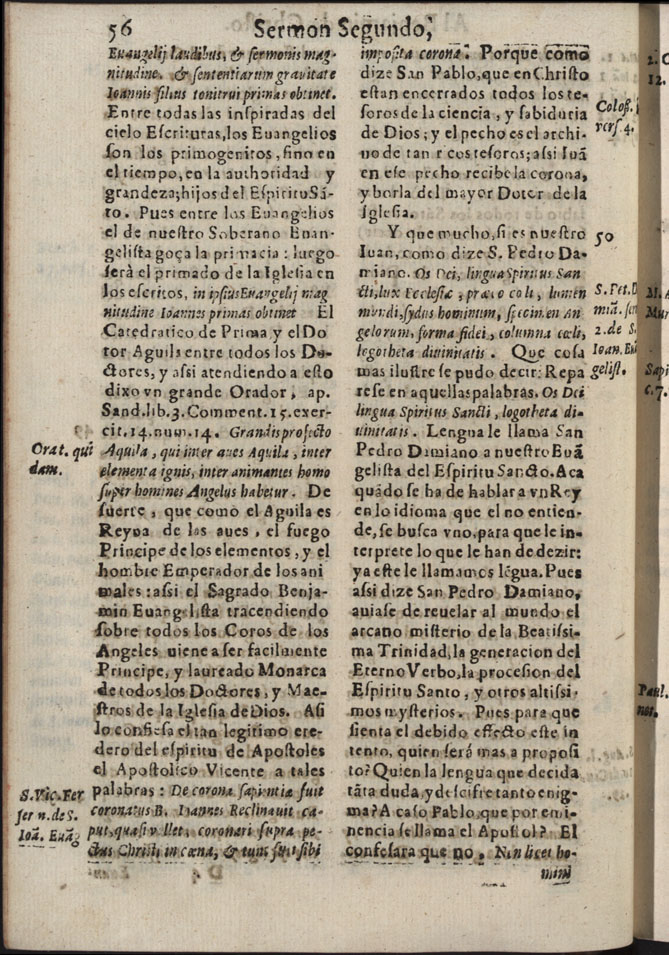 56
Sermon Segundo,
Euangelij laudibus, & sermonis mag-
nitudine, & sententiarum grauitate
Ioannis filius tonitrui primas obtinet.
Entre todas las inspiradas del
cielo Escrituras, los Euangelios
son los primogenitos, sino en
el tiempo, en la authoridad y
grandeza; hijos del Espiritu Sã-
to. Pues entre los Euangelios
el de nuestro Soberano Euan-
gelista goça la primacia: luego
serà el primado de la Iglesia en
los escritos, in ipsius Euangelij mag
nitudine Ioannes primas obtinet El
Catedratico de Prima y el Do
tor Aguila entre todos los Do-
ctores, y assi atendiendo a esto
dixo vn grande Orador, ap.
Sand. lib. 3. Comment. 15. exer-
cit. 14. num. 14. Grandis profecto
Aquila, qui inter aues Aquila, inter
elementa ignis, inter animantes homo
super homines Angelus habetur. De
suerte, que como el Aguila es
Reyna de las aues, el fuego
Principe de los elementos, y el
hombre Emperador de los ani
males: assi el Sagrado Benja-
min Euangelista tracendiendo
sobre todos los Coros de los
Angeles viene a ser facilmente
Principe, y laureado Monarca
de todos los Doctores, y Mae-
stros de la Iglesia de Dios. Asi
lo confiesa el tan legitimo ere-
dero del espiritu de Apostoles
el Apostolico Vicente a tales
palabras: De corona sapientiæ fuit
coronatus B. Ioannes Reclinauit ca-
put, quasi vellet, coronari supra pe-
ctus Christi in cœna, & tunc fuit sibi
Orat. qui
dam.
S. Vic. Fer
ser n. de S.
Ioã. Euãg
imposita corona. Porque como
dize San Pablo, que en Christo
estan encerrados todos los te-
soros de la ciencia, y sabiduria
de Dios; y el pecho es el archi-
uo de tan ricos tesoros; assi Iuã
en ese pecho recibe la corona,
y borla del mayor Dotor de la
Iglesia.
Y que mucho, si es nuestro
Iuan, como dize S. Pedro Da-
miano. Os Dei, lingua Spiritus San
cti, lux Ecclesiæ, præco coli, lumen
mundi, sydus hominum, specimen An
gelorum, forma fidei, columna cæli,
logotheta diuinitatis. Que cosa
mas ilustre se pudo decir: Repa
rese en aquellas palabras. Os Dei
lingua Spiritus Sancti, logotheta di-
uinitatis. Lengua le llama San
Pedro Dimiano a nuestro Euã
gelista del Espiritu Sancto. Aca
quãdo se ha de hablar a vn Rey
en lo idioma que el no entien-
de, se busca vno, para que le in-
terprete lo que le han de dezir:
ya este le llamamos lẽgua. Pues
assi dize San Pedro Damiano,
auiase de reuelar al mundo el
arcano misterio de la Beatissi-
ma Trinidad, la generacion del
Eterno Verbo, la procesion del
Espiritu Santo, y otros altissi-
mos mysterios. Pues para que
sienta el debido effecto este in
tento, quien serà mas a proposi
to? Quien la lengua que decida
tãta duda, y descifre tanto enig-
ma? A caso Pablo, que por emi-
nencia se llama el Apostol? El
confesara que no, Non licet ho-
mini
Colos.
vers. 4.
50
S. Pet. D
miã. ser
2. de S.
Ioan. Euã
gelist.
2. C
12.
M. A
Mar
Sapi
c. 7.
Paul.